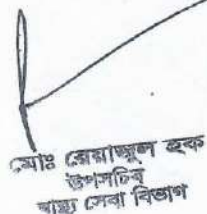 মোঃ রেয়াজুল হক
উপসচিব
স্বাস্থ্য সেবা বিভাগ